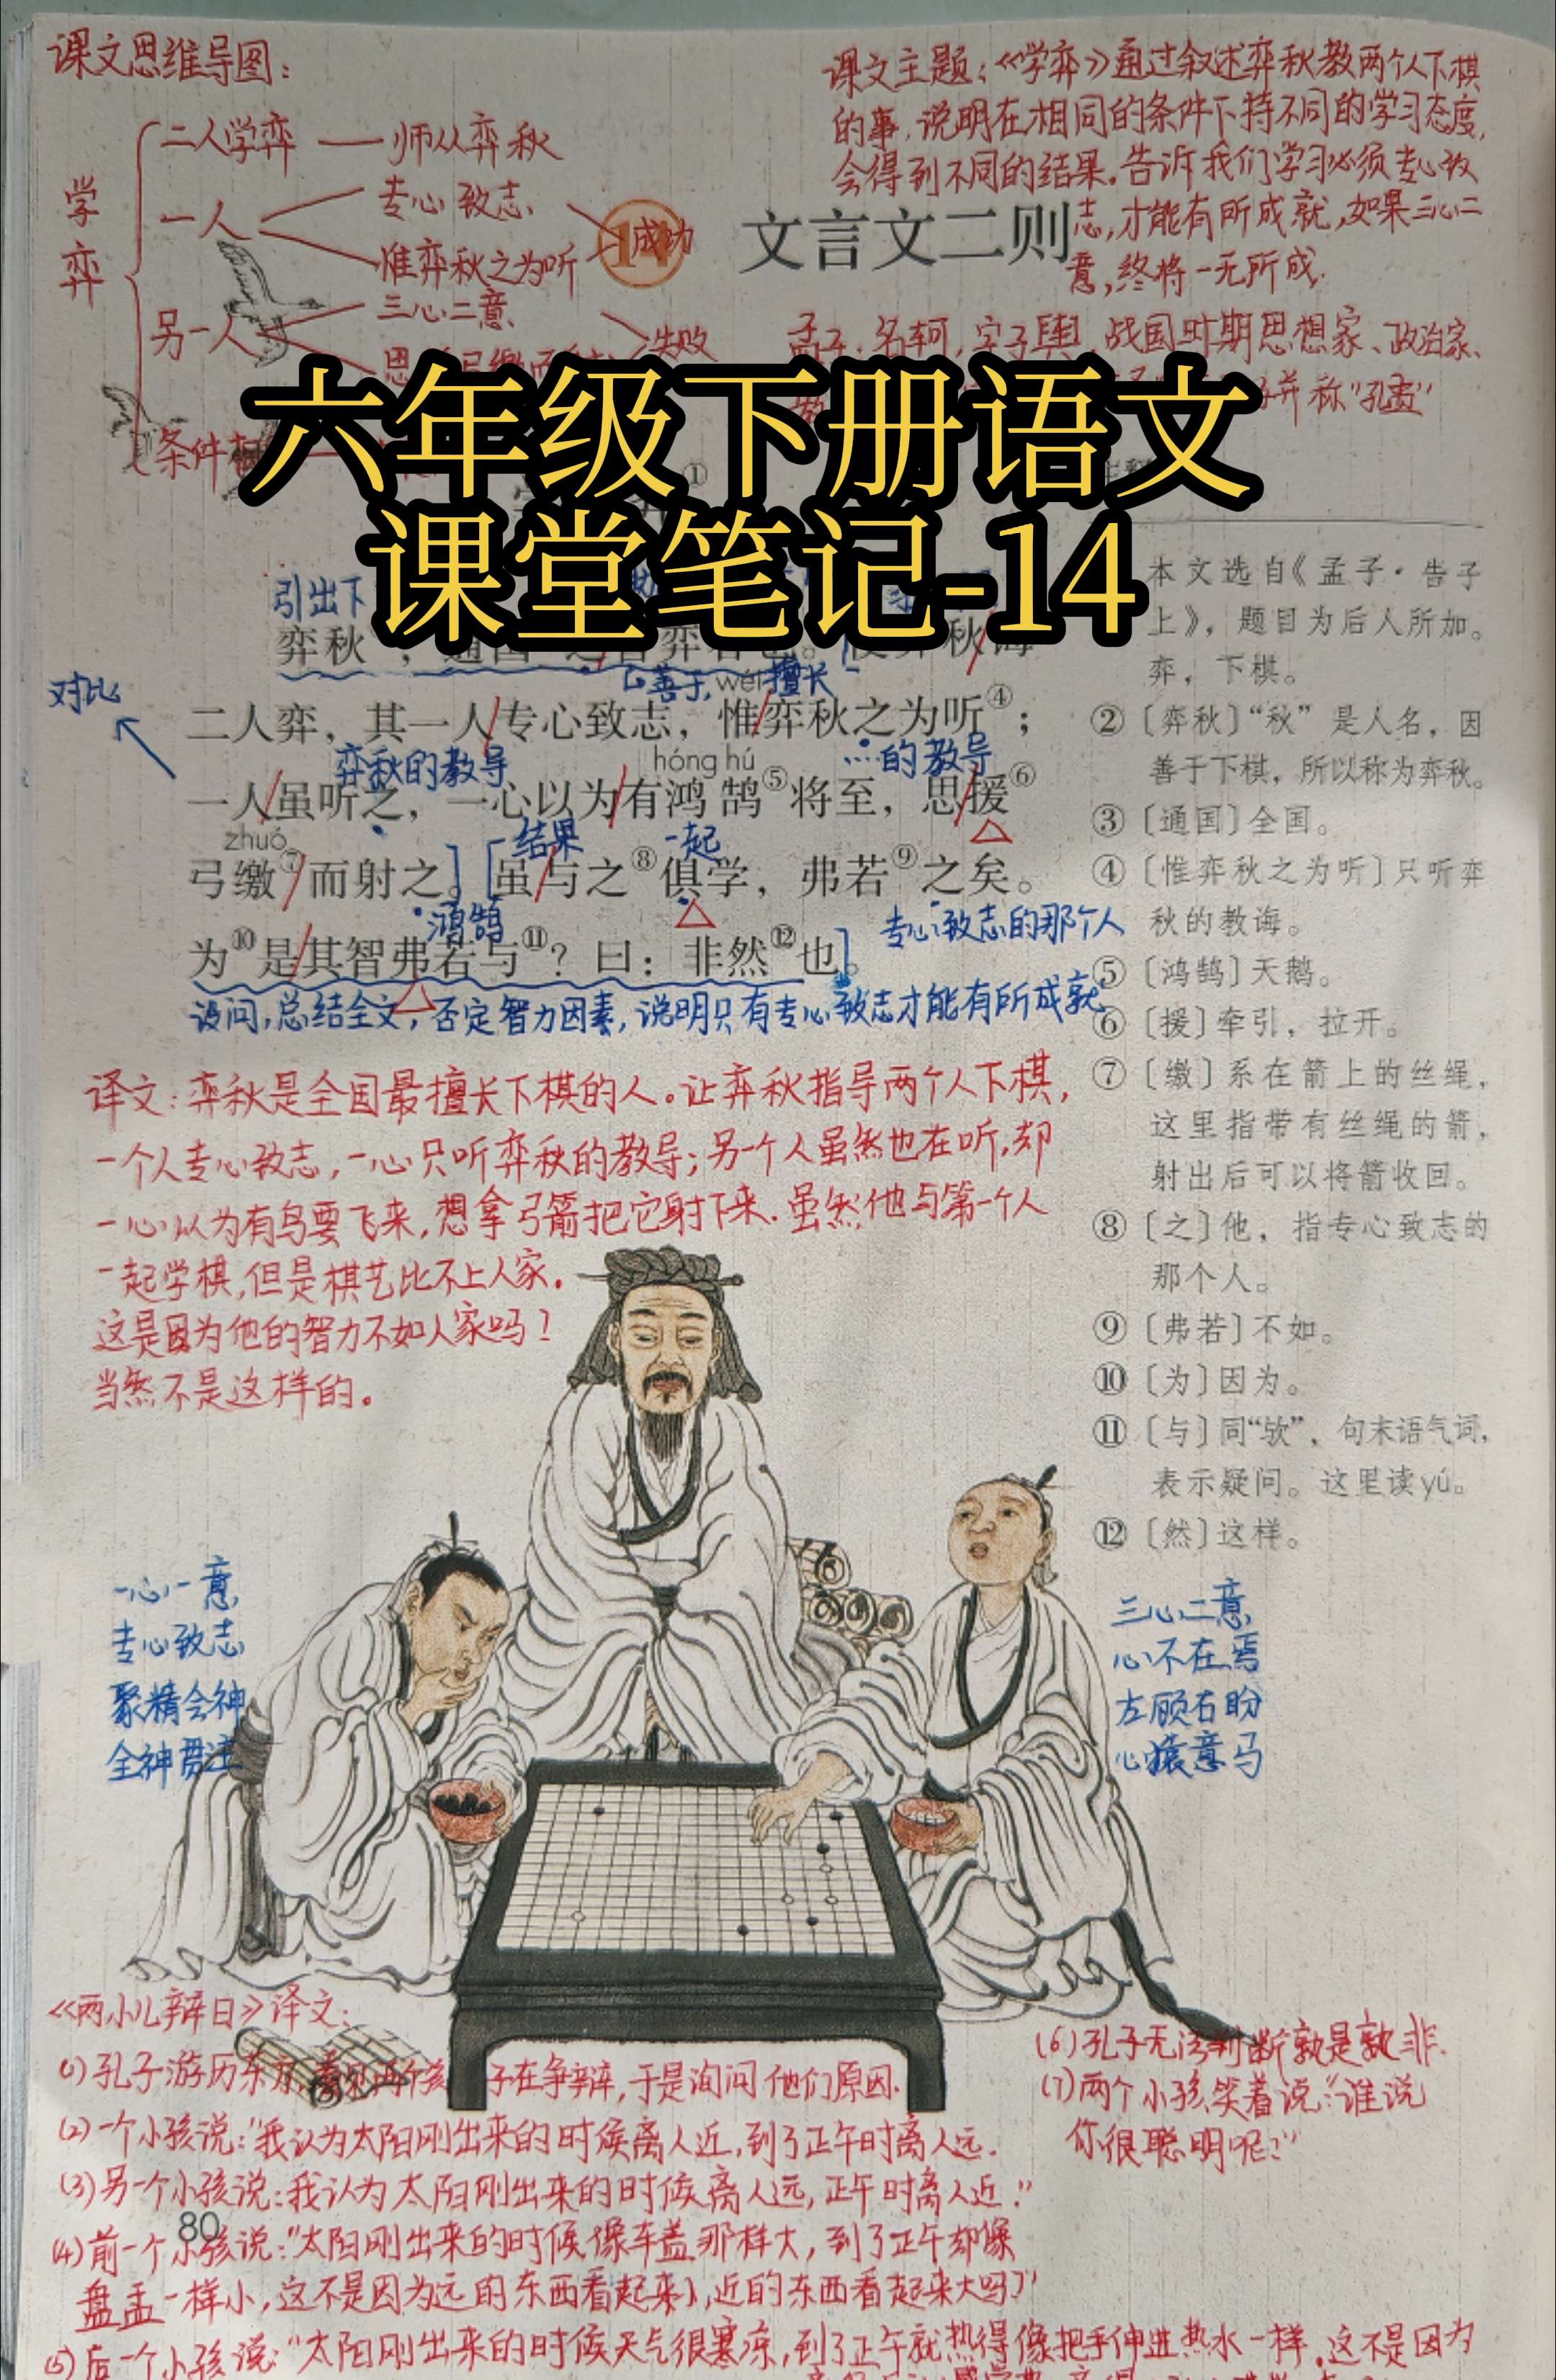 课文思维导图：
学弈
二人学弈 —— 师从弈秋
一人
专心致志
惟弈秋之为听
成功
另一人
三心二意
失败
条件
课文主题：《学弈》通过叙述弈秋教两个人下棋
的事，说明在相同的条件下持不同的学习态度，
会得到不同的结果。告诉我们学习必须专心致
志，才能有所成就，如果三心二
意，终将一无所成。
14 文言文二则
孟子，名轲，字子舆，战国时期思想家、政治家、
并称“孔孟”
六年级下册语文
课堂笔记-14
引出下
弈秋
二人弈，其一人专心致志，惟弈秋之为听④；
善于，擅长
wéi
对比
弈秋的教导
的教导
hóng hú
一人虽听之，一心以为有鸿鹄⑤将至，思援⑥
zhuó
结果
一起
弓缴⑦而射之。虽与之⑧俱学，弗若⑨之矣。
鸿鹄
专心致志的那个人
为⑩是其智弗若与⑪？曰：非然⑫也。
设问，总结全文，否定智力因素，说明只有专心致志才能有所成就
本文选自《孟子·告子
上》，题目为后人所加。
弈，下棋。
②〔弈秋〕“秋”是人名，因
善于下棋，所以称为弈秋。
③〔通国〕全国。
④〔惟弈秋之为听〕只听弈
秋的教诲。
⑤〔鸿鹄〕天鹅。
⑥〔援〕牵引，拉开。
⑦〔缴〕系在箭上的丝绳，
这里指带有丝绳的箭，
射出后可以将箭收回。
⑧〔之〕他，指专心致志的
那个人。
⑨〔弗若〕不如。
⑩〔为〕因为。
⑪〔与〕同“欤”，句末语气词，
表示疑问。这里读yú。
⑫〔然〕这样。
译文：弈秋是全国最擅长下棋的人。让弈秋指导两个人下棋，
一个人专心致志，一心只听弈秋的教导；另一个人虽然也在听，却
一心以为有鸟要飞来，想拿弓箭把它射下来。虽然他与第一个人
一起学棋，但是棋艺比不上人家。
这是因为他的智力不如人家吗？
当然不是这样的。
一心一意
专心致志
聚精会神
全神贯注
三心二意
心不在焉
左顾右盼
心猿意马
《两小儿辩日》译文：
(1)孔子游历东方，看见两个孩子在争辩，于是询问他们原因。
(2)一个小孩说：“我认为太阳刚出来的时候离人近，到了正午时离人远。
(3)另一个小孩说：“我认为太阳刚出来的时候离人远，正午时离人近。”
80
(4)前一个小孩说：“太阳刚出来的时候像车盖那样大，到了正午却像
盘盂一样小，这不是因为远的东西看起来小，近的东西看起来大吗？”
(5)后一个小孩说：“太阳刚出来的时候天气很寒凉，到了正午就热得像把手伸进热水一样，这不是因为
(6)孔子无法判断孰是孰非。
(7)两个小孩笑着说：“谁说
你很聪明呢？”